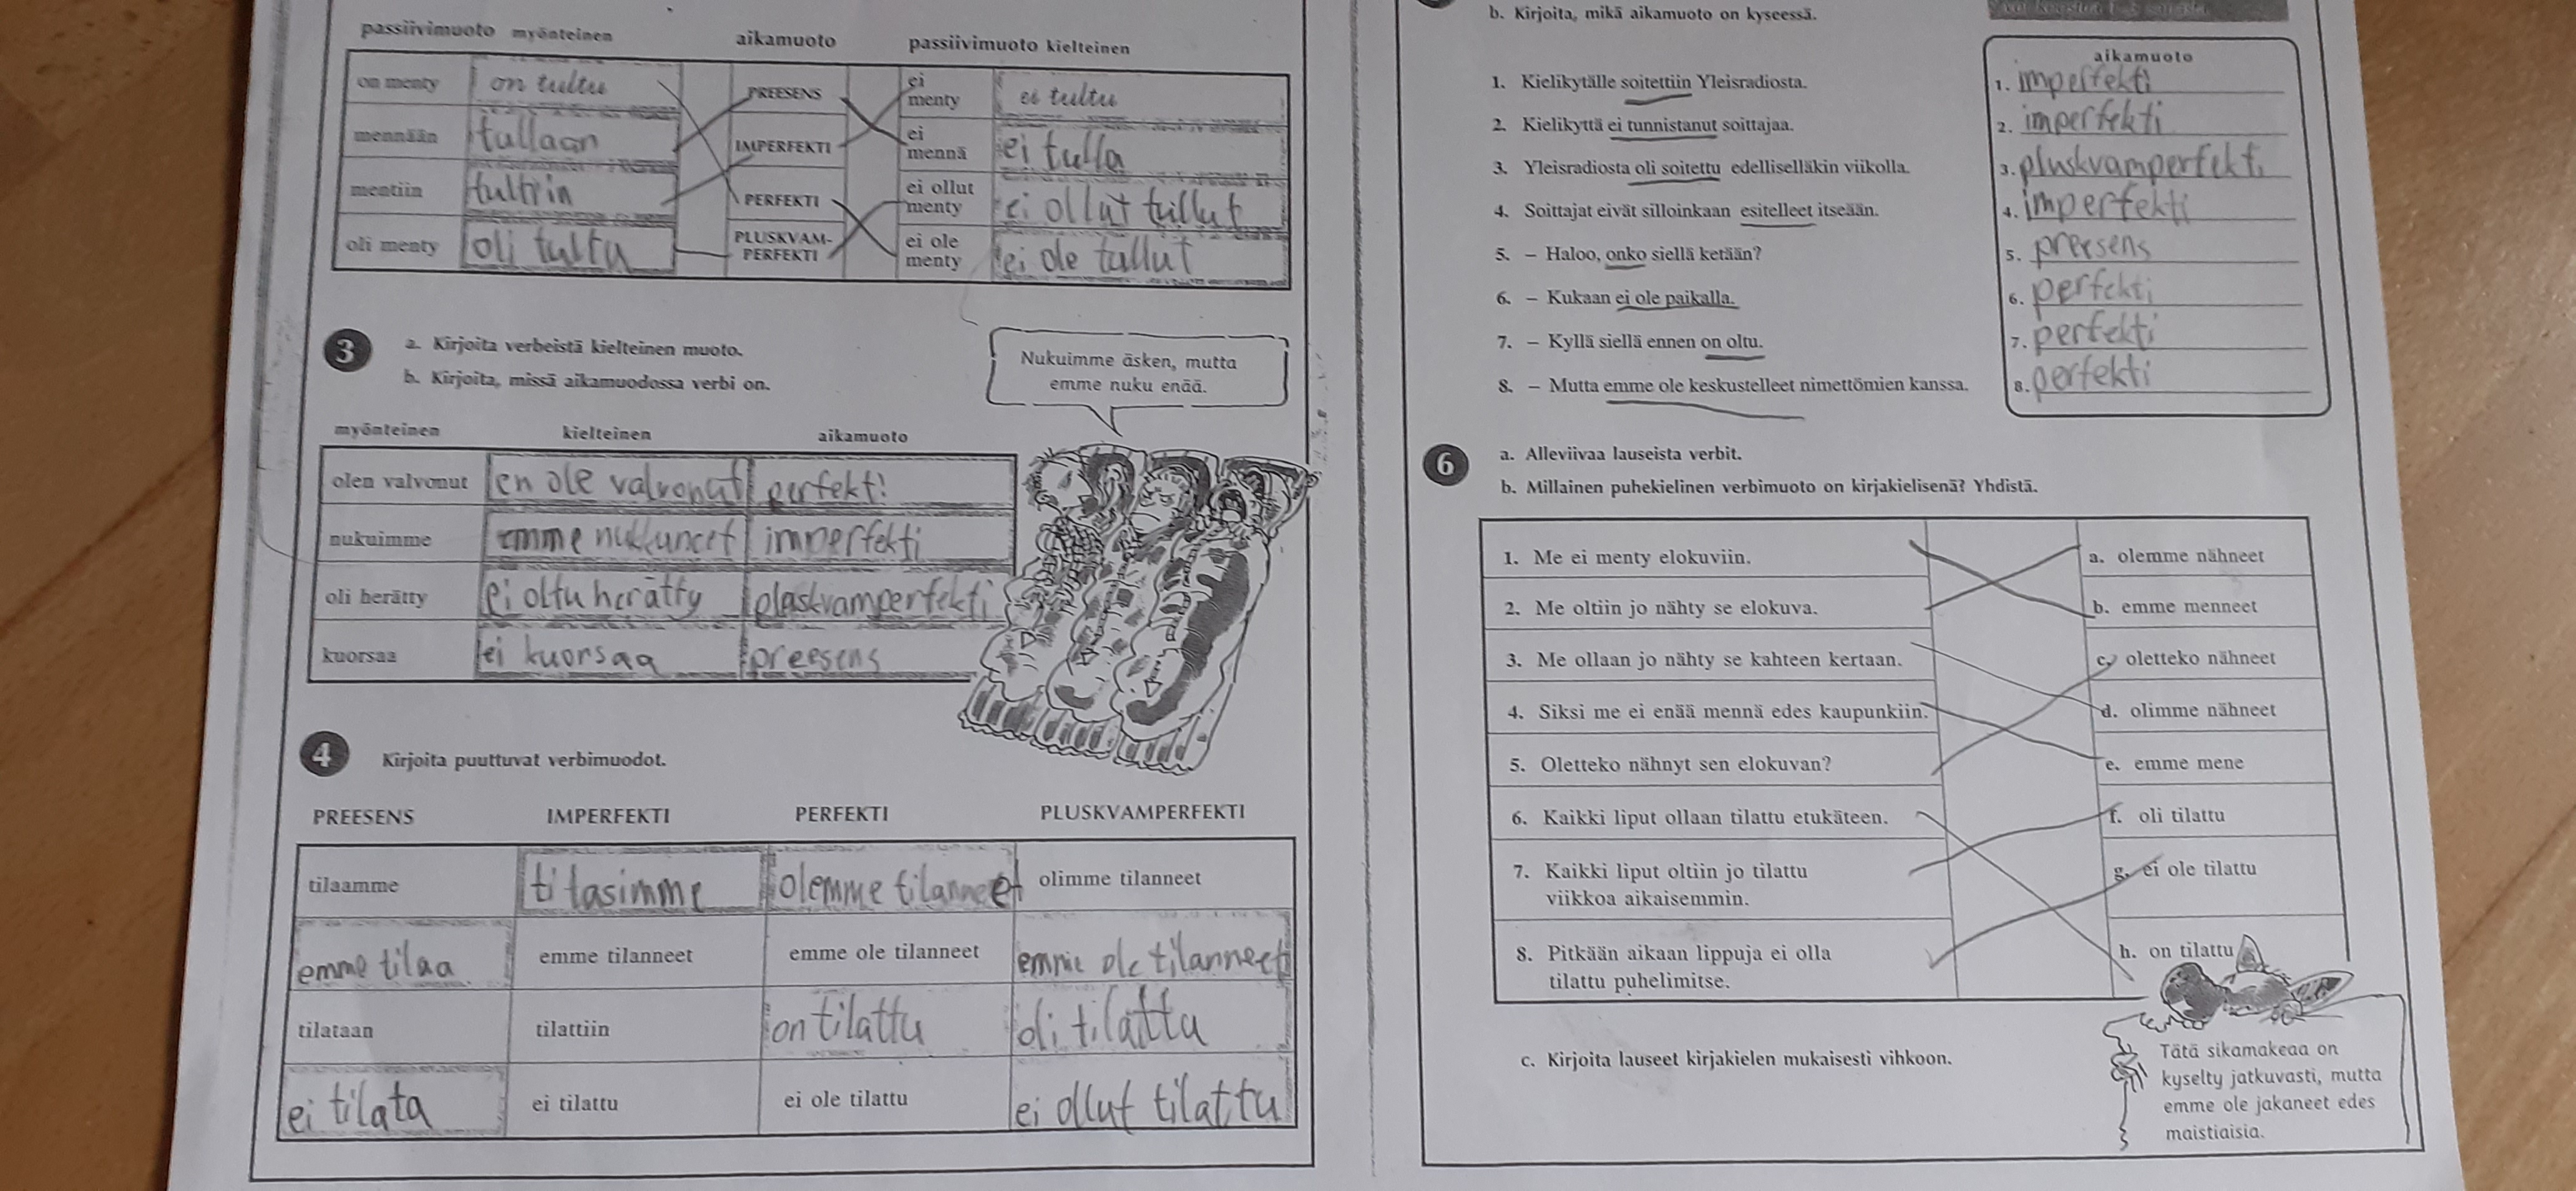 passiivimuoto myönteinen aikamuoto passiivimuoto kielteinen
on menty on tultu PREESENS ei menty ei tultu
mennään tullaan IMPERFEKTI ei mennä ei tulla
mentiin tultiin PERFEKTI ei ollut menty ei ollut tullut
oli menty oli tultu PLUSKVAM-PERFEKTI ei ole menty ei ole tullut
3 a. Kirjoita verbeistä kielteinen muoto.
b. Kirjoita, missä aikamuodossa verbi on.
Nukuimme äsken, mutta
emme nuku enää.
myönteinen kielteinen aikamuoto
olen valvonut en ole valvonut perfekti
nukuimme emme nukkuneet imperfekti
oli herätty ei oltu herätty pluskvamperfekti
kuorsaa ei kuorsaa preesens
4 Kirjoita puuttuvat verbimuodot.
PREESENS IMPERFEKTI PERFEKTI PLUSKVAMPERFEKTI
tilaamme tilasimme olemme tilanneet olimme tilanneet
emme tilaa emme tilanneet emme ole tilanneet emme ole tilanneet
tilataan tilattiin on tilattu oli tilattu
ei tilata ei tilattu ei ole tilattu ei ollut tilattu
b. Kirjoita, mikä aikamuoto on kyseessä.
aikamuoto
1. Kielikytälle soitettiin Yleisradiosta. 1. imperfekti
2. Kielikyttä ei tunnistanut soittajaa. 2. imperfekti
3. Yleisradiosta oli soitettu edelliselläkin viikolla. 3. pluskvamperfekti
4. Soittajat eivät silloinkaan esitelleet itseään. 4. imperfekti
5. – Haloo, onko siellä ketään? 5. preesens
6. – Kukaan ei ole paikalla. 6. perfekti
7. – Kyllä siellä ennen on oltu. 7. perfekti
8. – Mutta emme ole keskustelleet nimettömien kanssa. 8. perfekti
6 a. Alleviivaa lauseista verbit.
b. Millainen puhekielinen verbimuoto on kirjakielisenä? Yhdistä.
1. Me ei menty elokuviin. a. olemme nähneet
2. Me oltiin jo nähty se elokuva. b. emme menneet
3. Me ollaan jo nähty se kahteen kertaan. c. oletteko nähneet
4. Siksi me ei enää mennä edes kaupunkiin. d. olimme nähneet
5. Oletteko nähnyt sen elokuvan? e. emme mene
6. Kaikki liput ollaan tilattu etukäteen. f. oli tilattu
7. Kaikki liput oltiin jo tilattu g. ei ole tilattu
viikkoa aikaisemmin.
8. Pitkään aikaan lippuja ei olla h. on tilattu
tilattu puhelimitse.
c. Kirjoita lauseet kirjakielen mukaisesti vihkoon.
Tätä sikamakeaa on
kyselty jatkuvasti, mutta
emme ole jakaneet edes
maistiaisia.